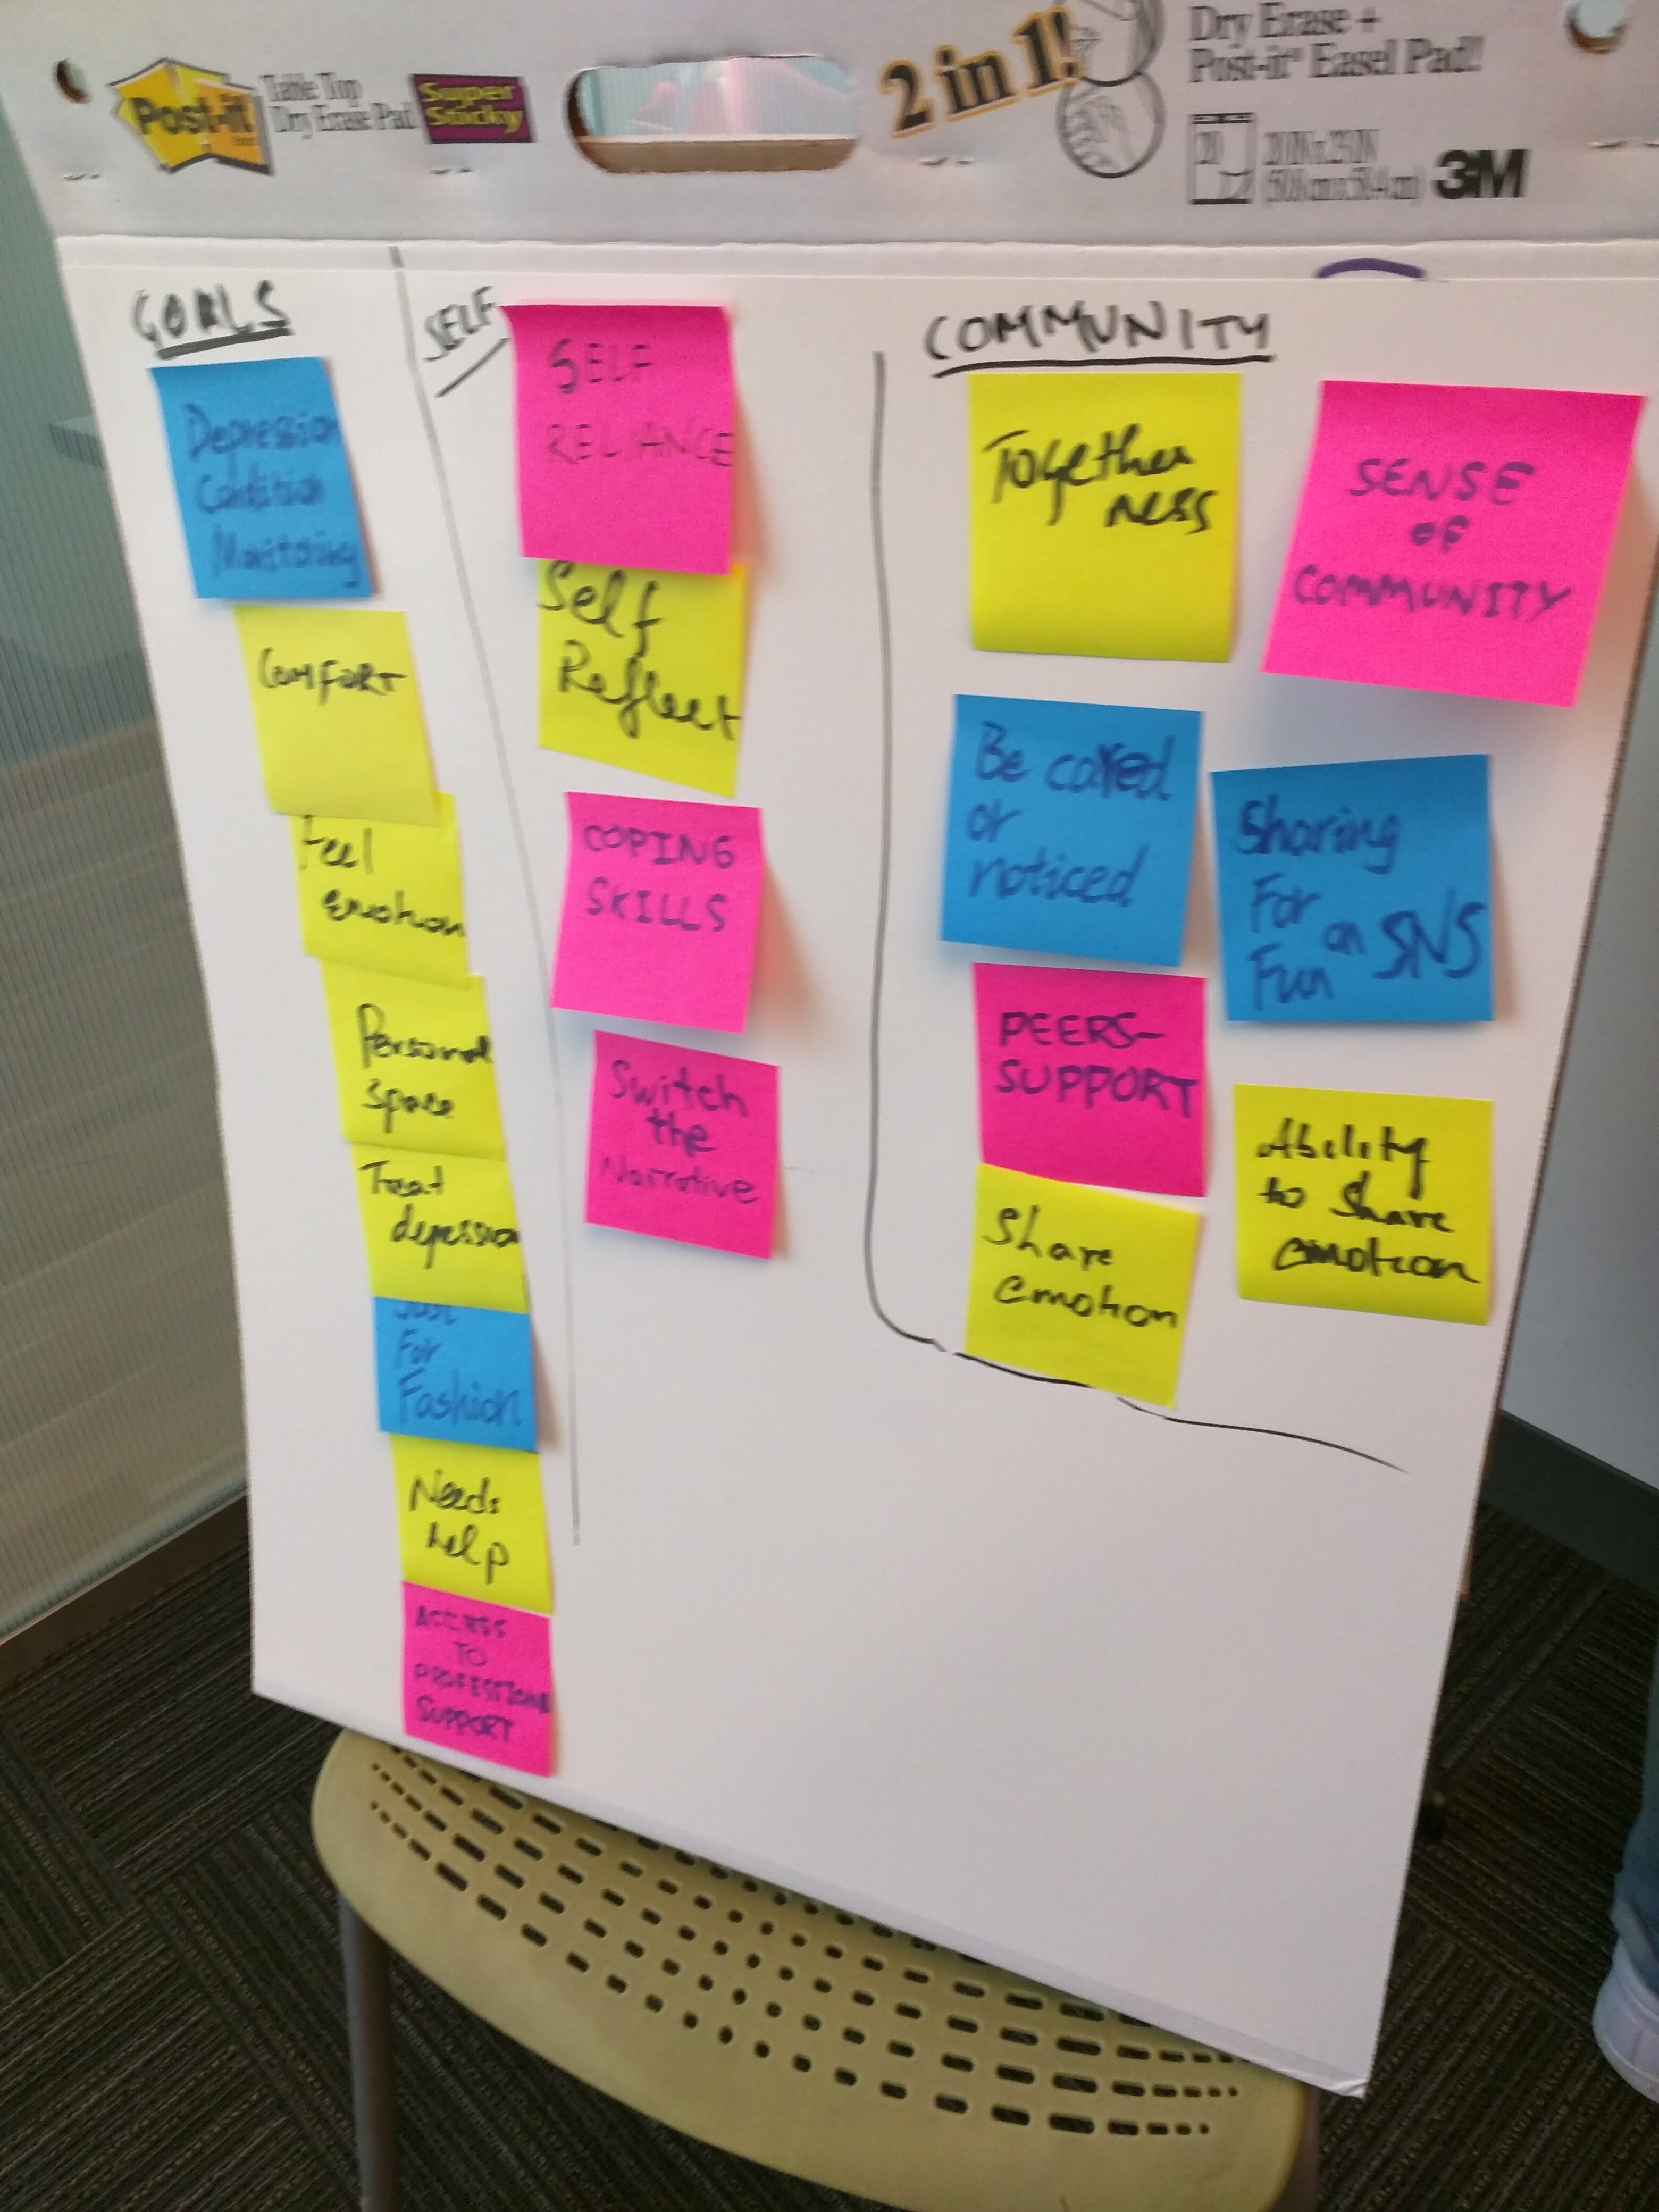 Post-it
Table Top
Dry Erase Pad
Super
Sticky
2 in 1!
Dry Erase +
Post-it® Easel Pad!
20
20 IN x 23 IN
(50.8 cm x 58.4 cm)
3M
GOALS
Depression
Condition
Monitoring
COMFORT
Feel
emotion
Personal
space
Treat
depression
Just
For
Fashion
Needs
help
ACCESS
TO
PROFESSIONAL
SUPPORT
SELF
SELF
RELIANCE
Self
Reflect
COPING
SKILLS
Switch
the
Narrative
COMMUNITY
Together
ness
SENSE
OF
COMMUNITY
Be cared
or
noticed
Sharing
For on SNS
Fun
PEERS-
SUPPORT
Share
emotion
Ability
to share
emotion